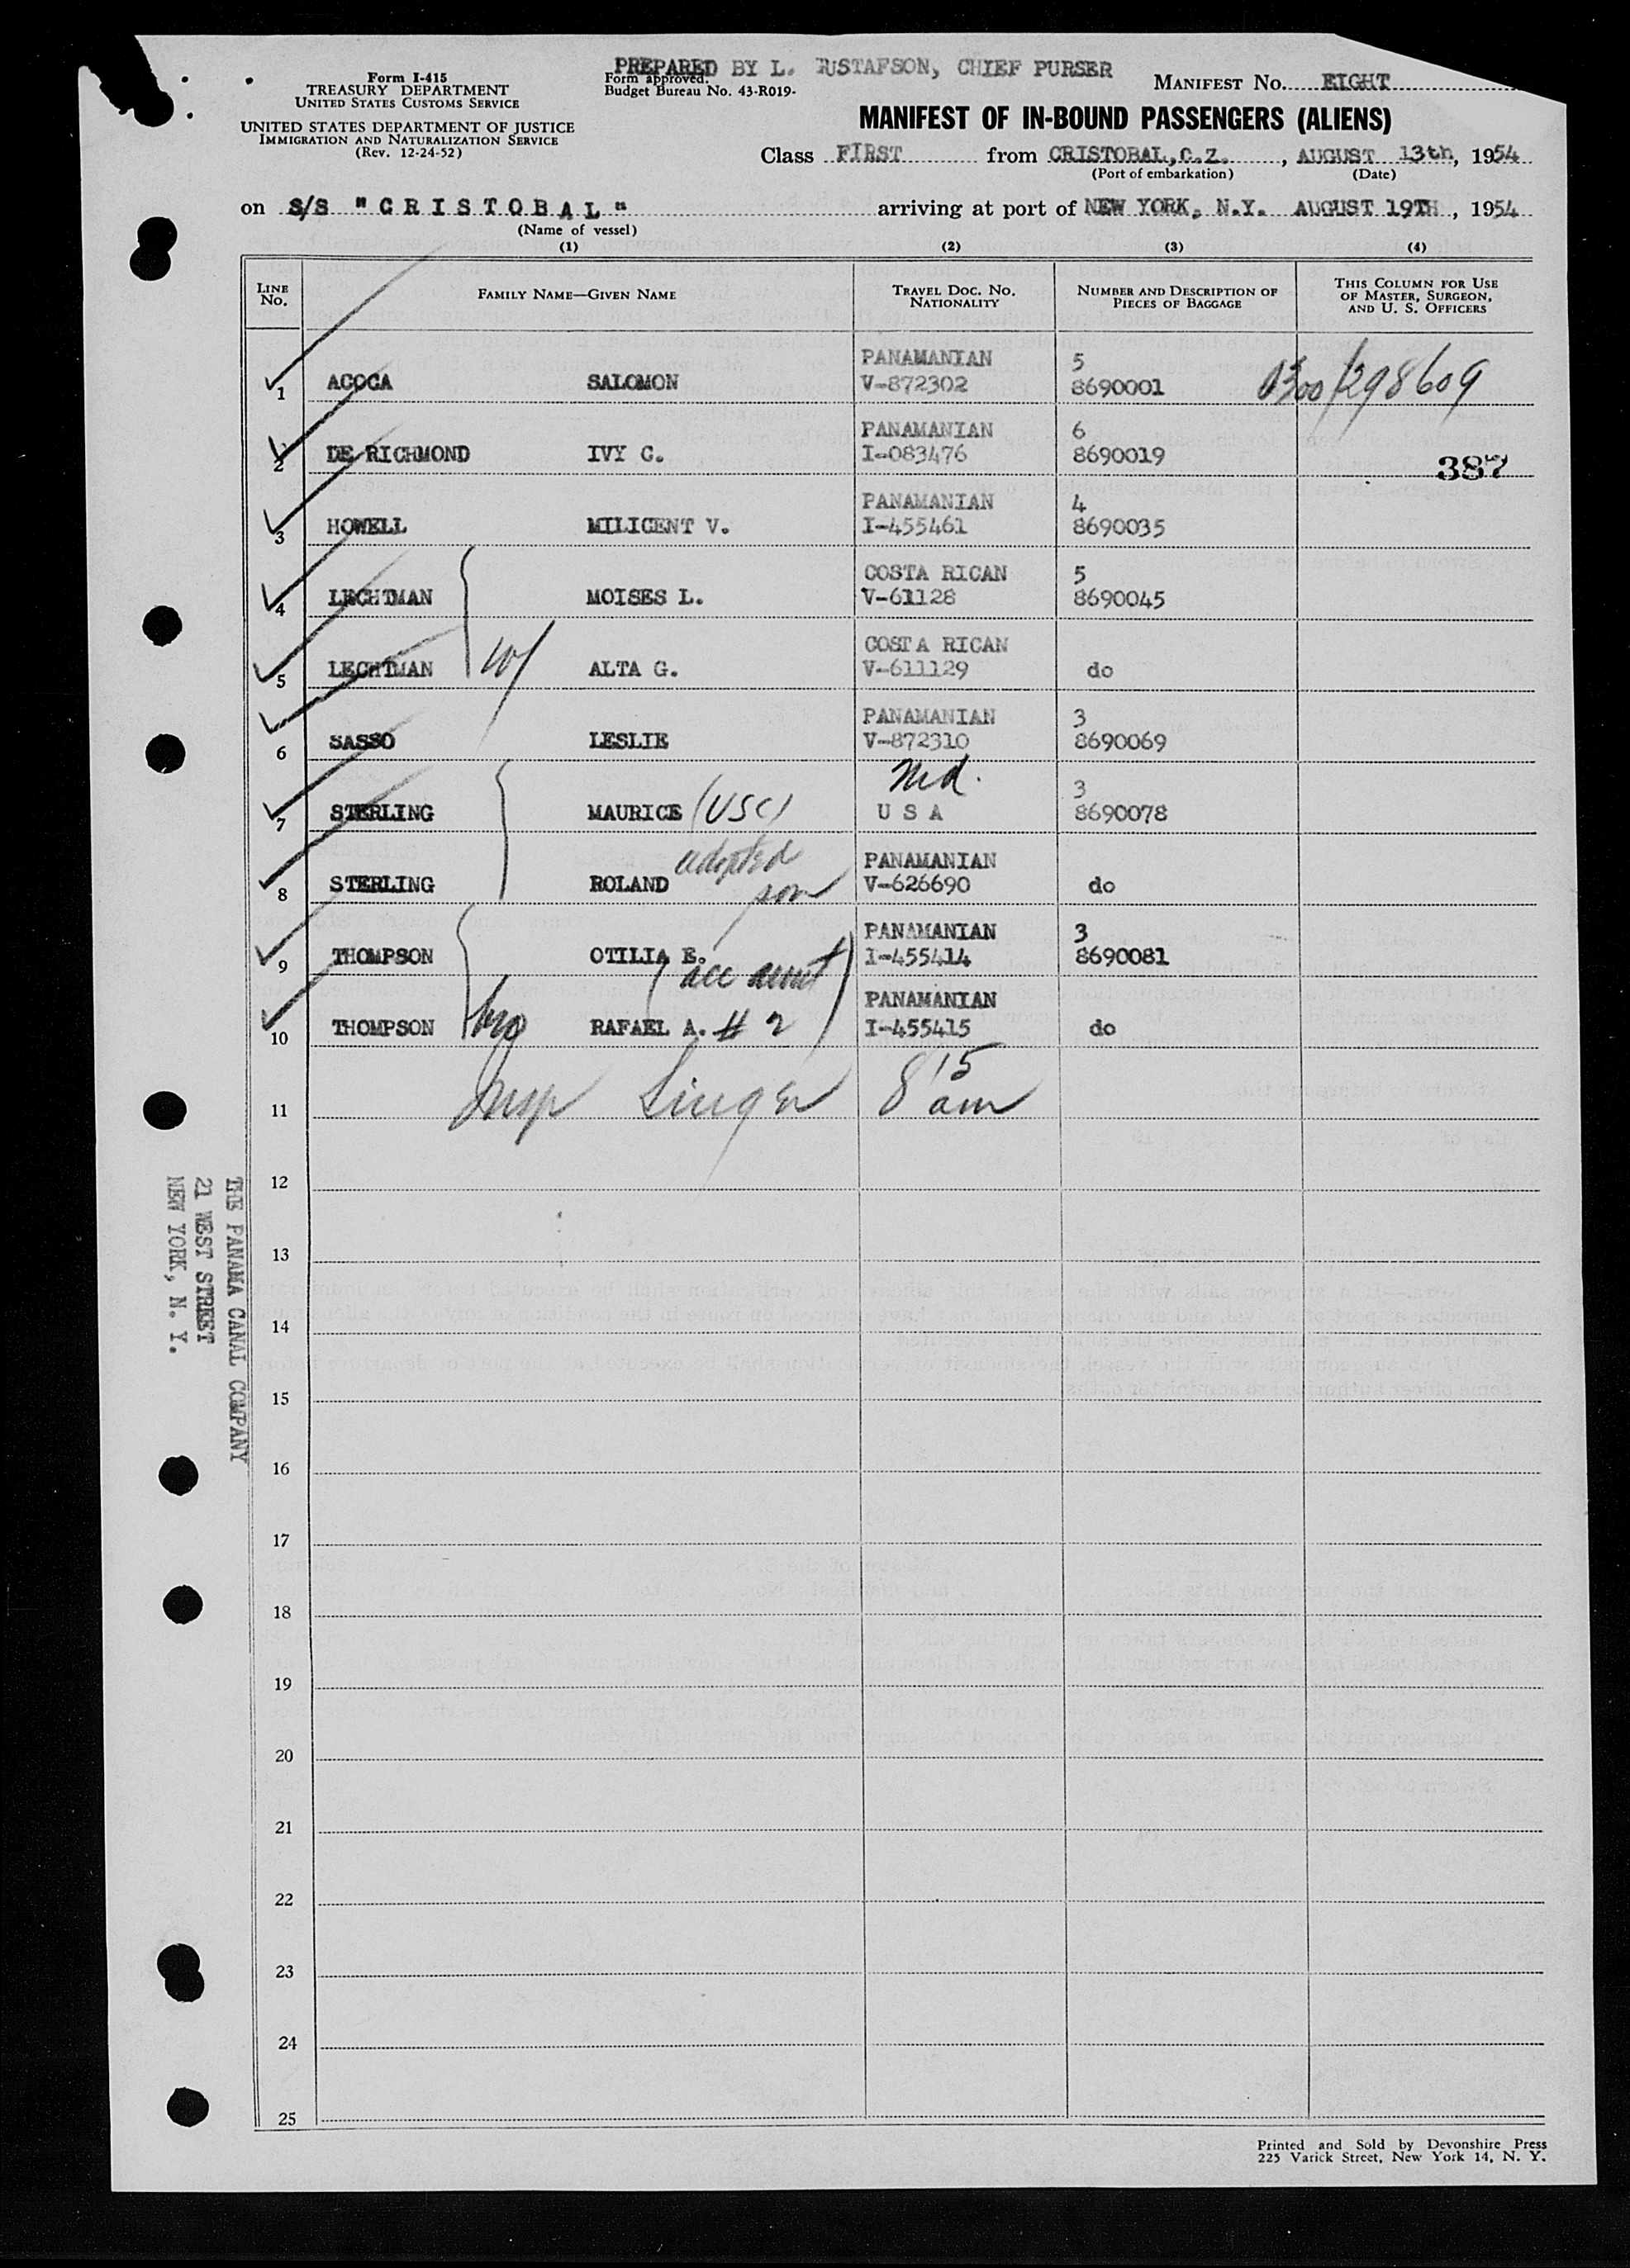 PREPARED BY L. GUSTAFSON, CHIEF PURSER
Form I-415
TREASURY DEPARTMENT
UNITED STATES CUSTOMS SERVICE
UNITED STATES DEPARTMENT OF JUSTICE
IMMIGRATION AND NATURALIZATION SERVICE
(Rev. 12-24-52)
Form approved.
Budget Bureau No. 43-R019-
MANIFEST NO. EIGHT
MANIFEST OF IN-BOUND PASSENGERS (ALIENS)
Class FIRST from CRISTOBAL,C.Z., AUGUST 13th, 1954
(Port of embarkation) (Date)
on S/S "CRISTOBAL" arriving at port of NEW YORK, N.Y. AUGUST 19TH, 1954
(Name of vessel)
(1) (2) (3) (4)
LINE NO.
FAMILY NAME—GIVEN NAME
TRAVEL DOC. NO.
NATIONALITY
NUMBER AND DESCRIPTION OF
PIECES OF BAGGAGE
THIS COLUMN FOR USE
OF MASTER, SURGEON,
AND U. S. OFFICERS
PANAMANIAN 5
1 ACOCA SALOMON V-872302 8690001 0300/298609
PANAMANIAN 6
2 DE RICHMOND IVY C. I-083476 8690019 387
PANAMANIAN 4
3 HOWELL MILICENT V. I-455461 8690035
COSTA RICAN 5
4 LECHTMAN MOISES L. V-61128 8690045
COSTA RICAN
5 LECHTMAN W/ ALTA G. V-611129 do
PANAMANIAN 3
6 SASSO LESLIE V-872310 8690069
3
7 STERLING MAURICE (USC) U S A 8690078
adopted PANAMANIAN
8 STERLING ROLAND son V-626690 do
PANAMANIAN 3
9 THOMPSON OTILIA E. I-455414 8690081
(acc aunt) PANAMANIAN
10 THOMPSON bro RAFAEL A. #2 I-455415 do
11 Insp Singer 8 15 am
12
13
14
15
16
17
18
19
20
21
22
23
24
25
THE PANAMA CANAL COMPANY
21 WEST STREET
NEW YORK, N. Y.
Printed and Sold by Devonshire Press
225 Varick Street, New York 14, N. Y.